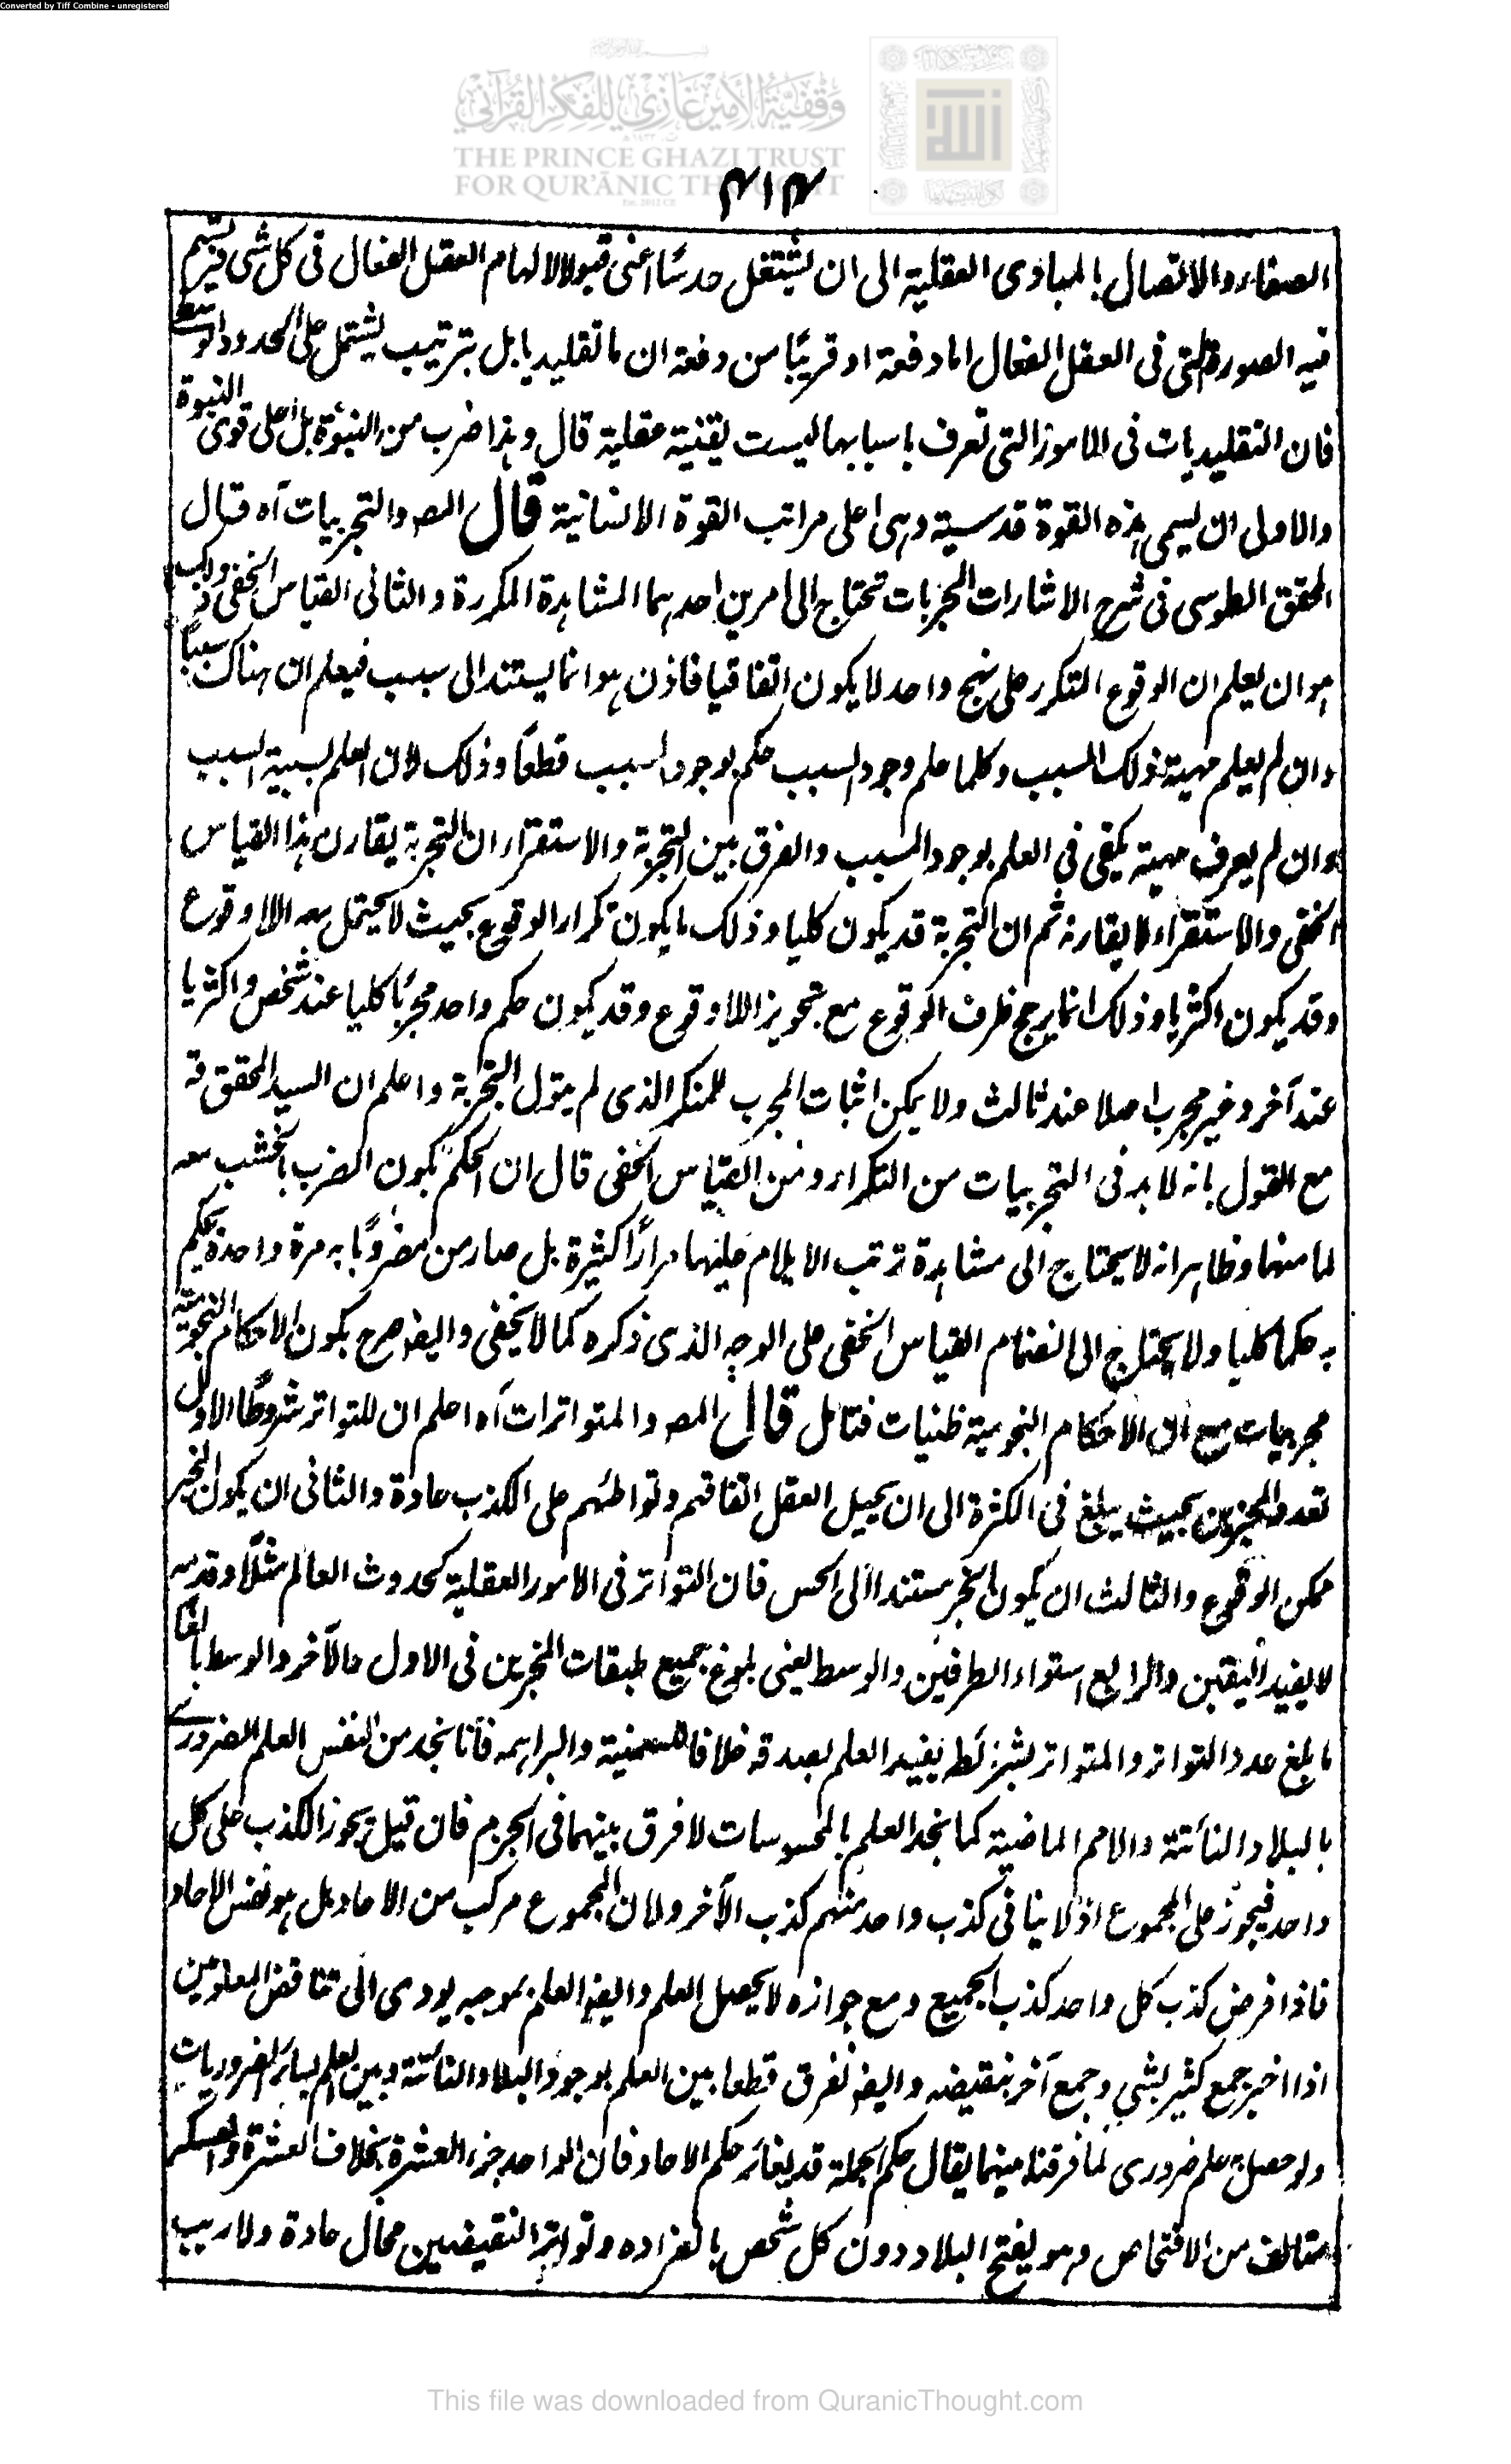 Converted by Tiff Combine - unregistered
وقفية الأمير غازي للفكر القرآني
THE PRINCE GHAZI TRUST
FOR QUR'ĀNIC THOUGHT
۴۱۴
الصفاء والاتصال بالمبادى العقلية الى ان يشتعل حدسًا اعنى قبولا لالهام العقل الفعال فى كل شى فيرتسم
فيه الصورة التى فى العقل الفعال اما دفعة او قريبًا من دفعة ان ما تقليديا بل بترتيب يشتمل على الحدود الوسطى
فان التقليديات فى الامور التى تعرف باسبابها ليست يقنية عقلية قال وهذا ضرب من النبوة بل اعلى قوى النبوة
والاولى ان يسمى هذه القوة قدسية وهى اعلى مراتب القوة الانسانية قال المص والتجربيات آه قال
المحقق الطوسى فى شرح الاشارات المجربات تحتاج الى امرين احدهما المشاهدة المكررة والثانى القياس الخفى وذلك
هو ان يعلم ان الوقوع المتكرر على نهج واحد لا يكون اتفاقيا فاذن هو انما يستند الى سبب فيعلم ان هناك سببًا
وان لم يعلم مهية ذلك السبب وكلما علم وجود السبب حكم بوجود المسبب قطعًا وذلك لان العلم بسببية السبب
وان لم يعرف مهيته يكفى فى العلم بوجود المسبب والفرق بين التجربة والاستقراء ان التجربة يقارن هذا القياس
الخفى والاستقراء لا يقارنه ثم ان التجربة قد يكون كليا وذلك ما يكون تكرار الوقوع بحيث لا يحتمل معه اللاوقوع
وقد يكون اكثريا وذلك انما يرجح طرف الوقوع مع تجويز اللاوقوع وقد يكون حكم واحد مجربًا كليا عند شخص واكثريا
عند آخر وغير مجرب اصلا عند ثالث ولا يمكن اثبات المجرب للمنكر الذى لم يتول التجربة واعلم ان السيد المحقق قه
مع القول بانه لا بد فى التجربيات من التكرار ومن القياس الخفى قال ان الحكم بكون الضرب بالخشب معه
لما منها وظاهر انه لا يحتاج الى مشاهدة ترتب الايلام عليها مرارًا كثيرة بل صار من مضروبًا به مرة واحدة يحكم
به حكما كليا ولا يحتاج الى انضمام القياس الخفى على الوجه الذى ذكره كما لا يخفى وايضا صرح بكون الاحكام النجومية
مجربيات مع ان الاحكام النجومية ظنيات فتامل قال المص والمتواترات آه اعلم ان للتواتر شروطًا الاول
تعدد المخبرين بحيث يبلغ فى الكثرة الى ان يحيل العقل اتفاقهم وتواطئهم على الكذب عادة والثانى ان يكون الخبر
ممكن الوقوع والثالث ان يكون الخبر مستندا الى الحس فان التواتر فى الامور العقلية كحدوث العالم مثلًا وقدمه
لا يفيد اليقين والرابع استواء الطرفين والوسط يعنى بلوغ جميع طبقات المخبرين فى الاول والآخر والوسط بالغًا
ما بلغ عدد التواتر والمتواتر بشرائطه يفيد العلم بصدقه خلافا للسمنية والبراهمه فانا نجد من انفس العلم الضرورى
بالبلاد النائية والامم الماضية كما نجد العلم بالمحسوسات لا فرق بينهما فى الجزم فان قيل يجوز الكذب على كل
واحد فيجوز على المجموع اذ لا ينافى كذب واحد منهم كذب الآخر ولان المجموع مركب من الآحاد بل هو نفس الآحاد
فاذا فرض كذب كل واحد كذب الجميع ومع جوازه لا يحصل العلم وايضا العلم بموجبه يودى الى تناقض المعلومين
اذا اخبر جمع كثير بشى وجمع آخر بنقيضه وايضا نفرق قطعا بين العلم بوجود البلاد النائية وبين العلم بسائر الضروريات
ولو حصل به علم ضرورى لما فرقنا بينهما يقال حكم الجملة قد يغائر حكم الآحاد فان الواحد جزء العشرة بخلاف العشرة والعسكر
متالف من الاشخاص وهو يفتح البلاد دون كل شخص بانفراده وتواتر النقيضين محال عادة ولا ريب
This file was downloaded from QuranicThought.com